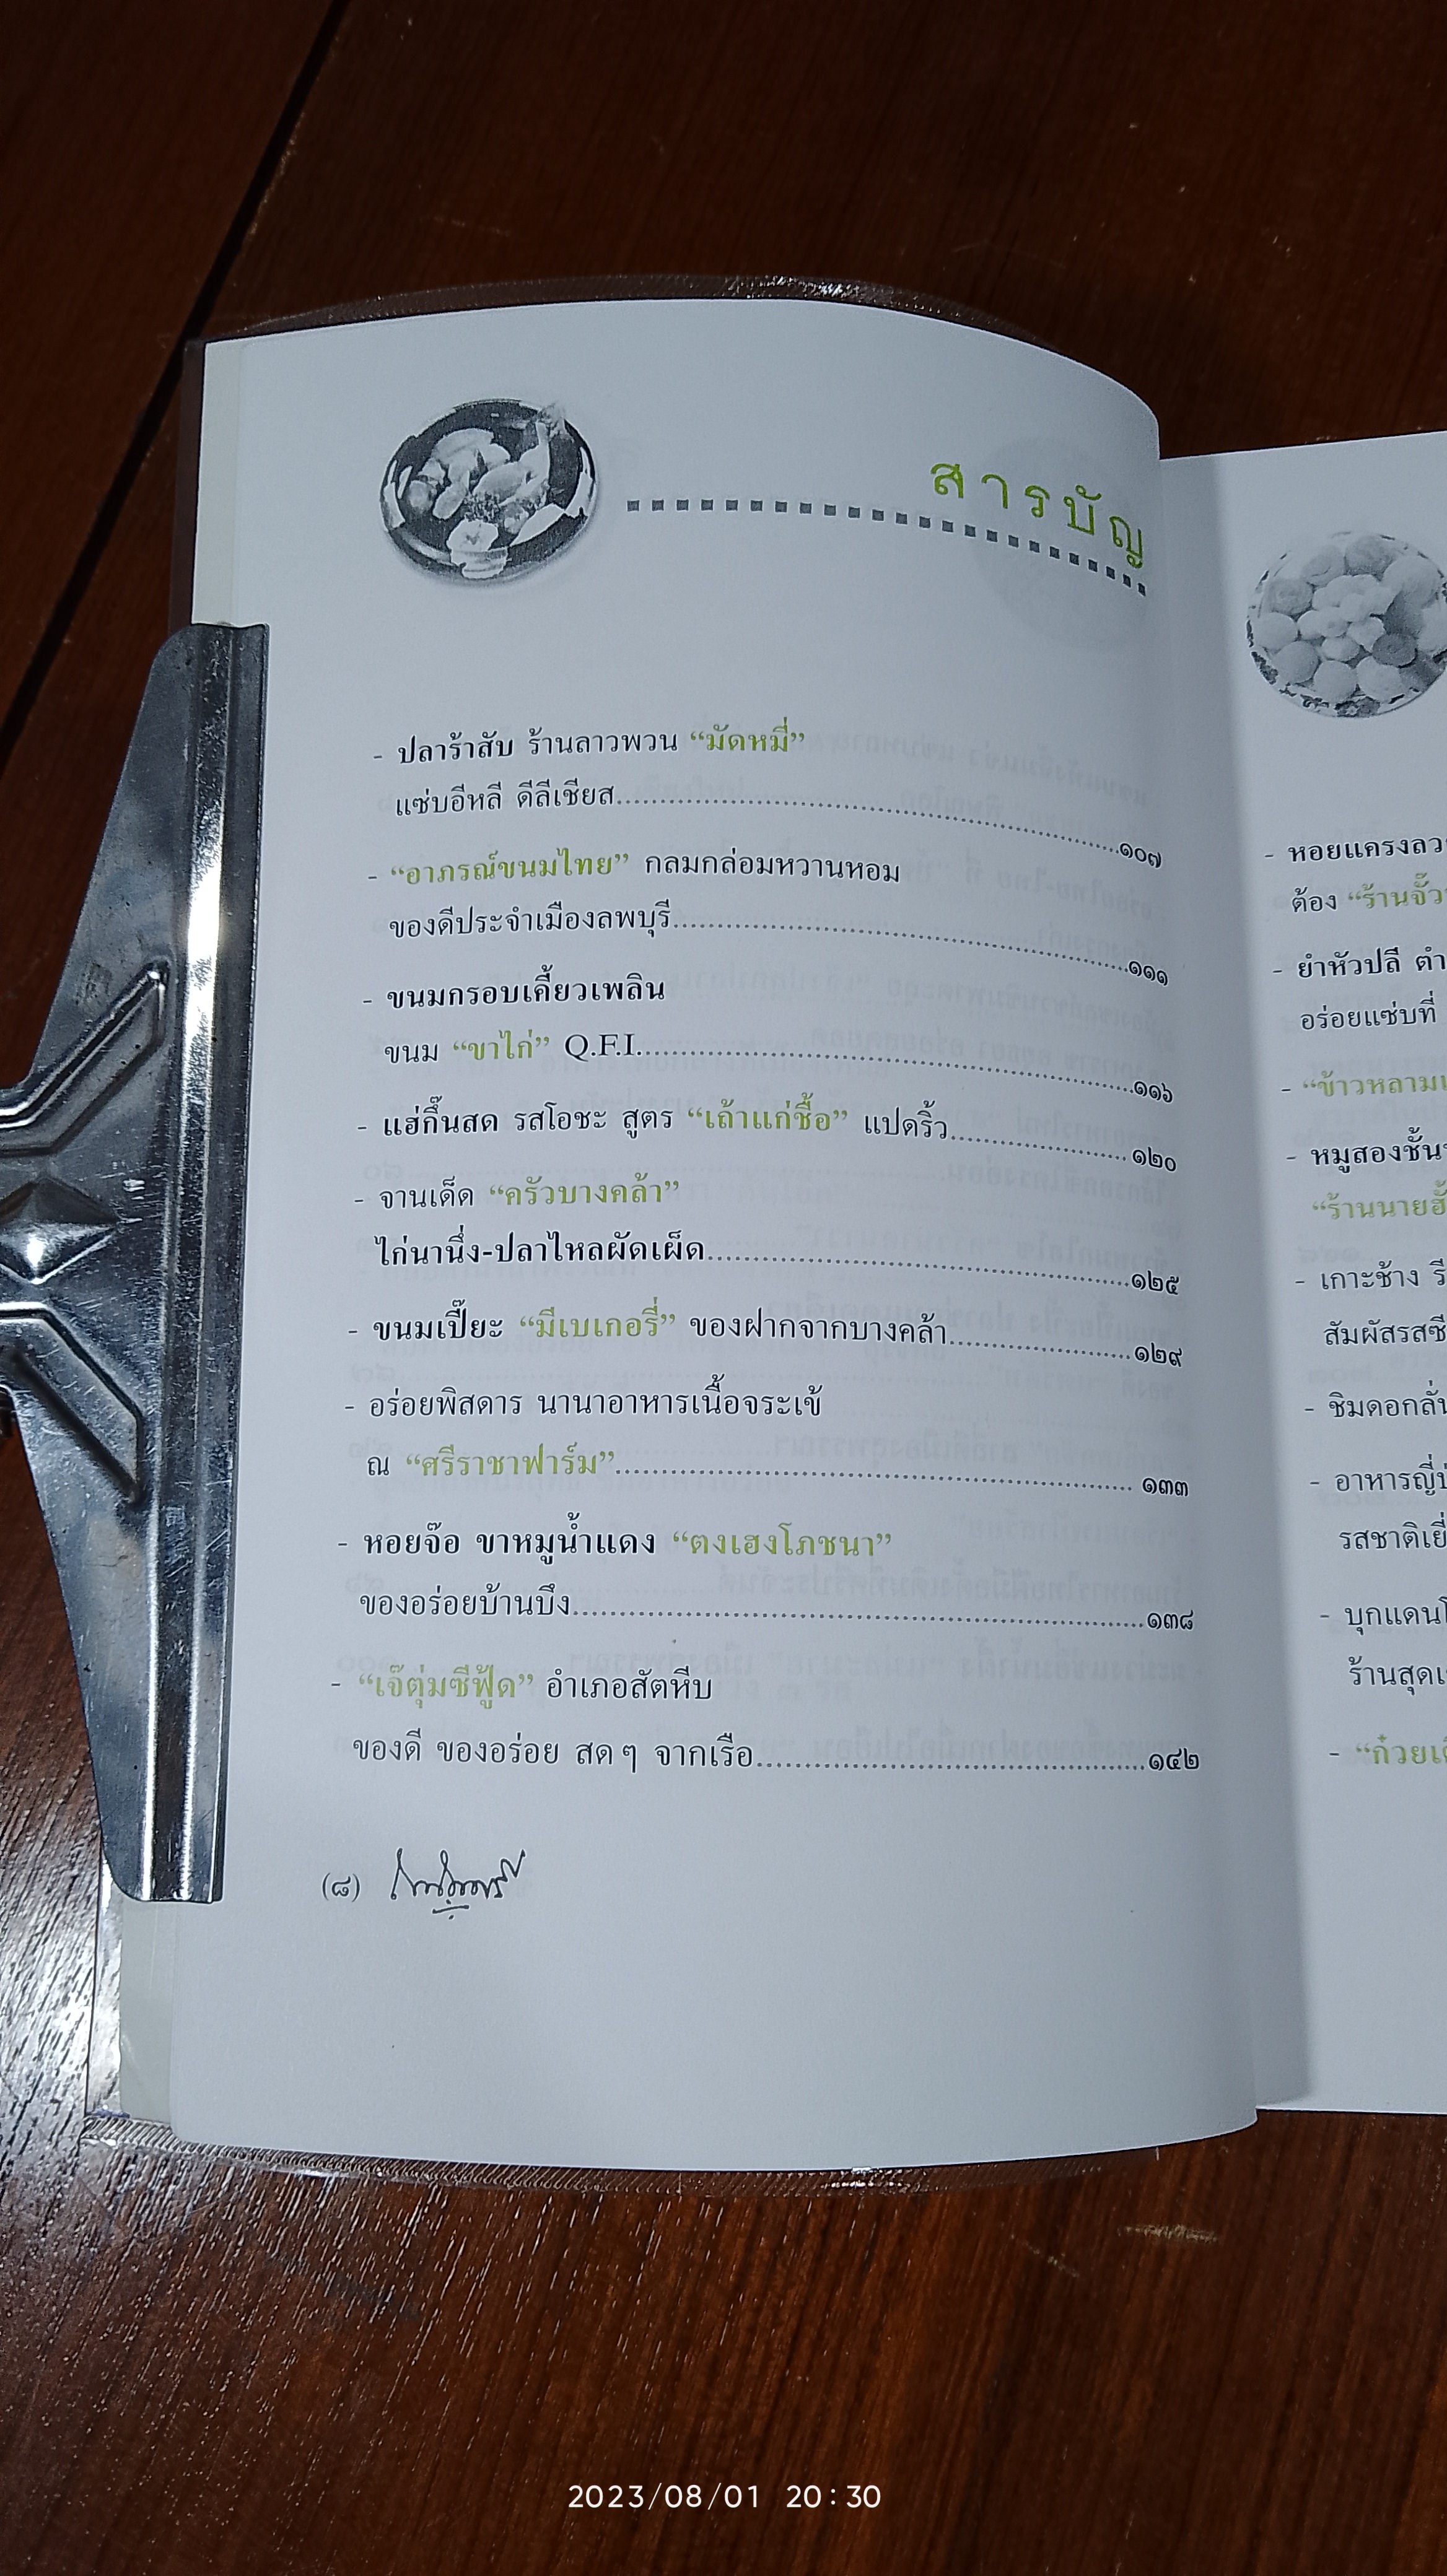 สารบัญ
- ปลาร้าสับ ร้านลาวพวน “มัดหมี่”
แซ่บอีหลี ดีลีเชียส....................๑๐๗
- “อาภรณ์ขนมไทย” กลมกล่อมหวานหอม
ของดีประจำเมืองลพบุรี....................๑๑๑
- ขนมกรอบเคี้ยวเพลิน
ขนม “ขาไก่” Q.F.I.....................๑๑๖
- แฮ่กึ๊นสด รสโอชะ สูตร “เถ้าแก่ชื้อ” แปดริ้ว....................๑๒๐
- จานเด็ด “ครัวบางคล้า”
ไก่นานึ่ง-ปลาไหลผัดเผ็ด....................๑๒๕
- ขนมเปี๊ยะ “มีเบเกอรี่” ของฝากจากบางคล้า....................๑๒๙
- อร่อยพิสดาร นานาอาหารเนื้อจระเข้
ณ “ศรีราชาฟาร์ม”.................... ๑๓๓
- หอยจ๊อ ขาหมูน้ำแดง “ตงเฮงโภชนา”
ของอร่อยบ้านบึง....................๑๓๘
- “เจ๊ตุ่มซีฟู้ด” อำเภอสัตหีบ
ของดี ของอร่อย สดๆ จากเรือ....................๑๔๒
(๘)
- หอยแครงลว
ต้อง “ร้านจั๊ว
- ยำหัวปลี ตำ
อร่อยแซ่บที่
- “ข้าวหลาม
- หมูสองชั้น
“ร้านนายฮั้
- เกาะช้าง รี
สัมผัสรสซี
- ชิมดอกลั่น
- อาหารญี่ป
รสชาติเยี่
- บุกแดน
ร้านสุด
- “ก๋วยเ
2023/08/01 20:30